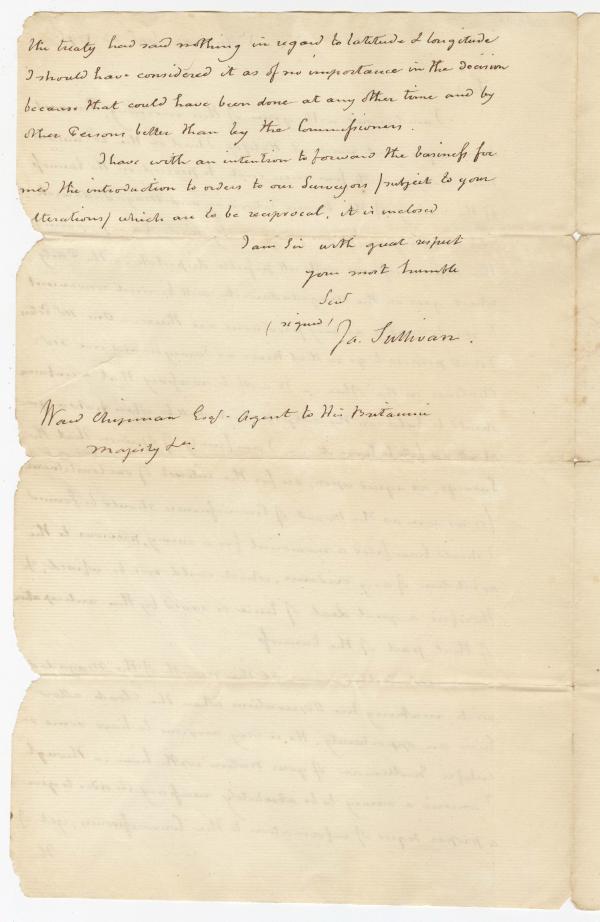 the treaty had said nothing in regard to latitude & longitude
I should have considered it as of no importance in the decision
because that could have been done at any other time and by
other Persons better than by the Commissioners.
I have with an intention to forward the business for
med the introduction to orders to our Surveyors /subject to your
lterations/ which are to be reciprocal, it is inclosed
I am Sir with great respect
your most humble
Servt
(signed) Ja. Sullivan.
Ward Chipman Esqr. Agent to His Britannic
Majesty &c.